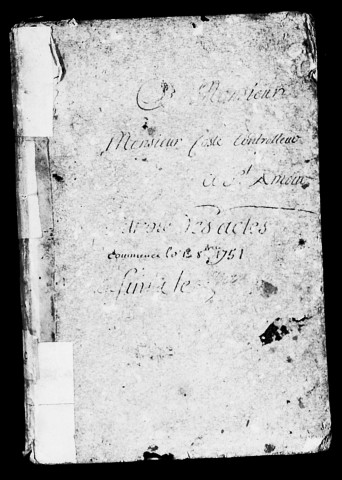 A Monsieur
Monsieur Coste Controlleur
A St Amour
des actes
commencé le 12 8bre 1751
finit le